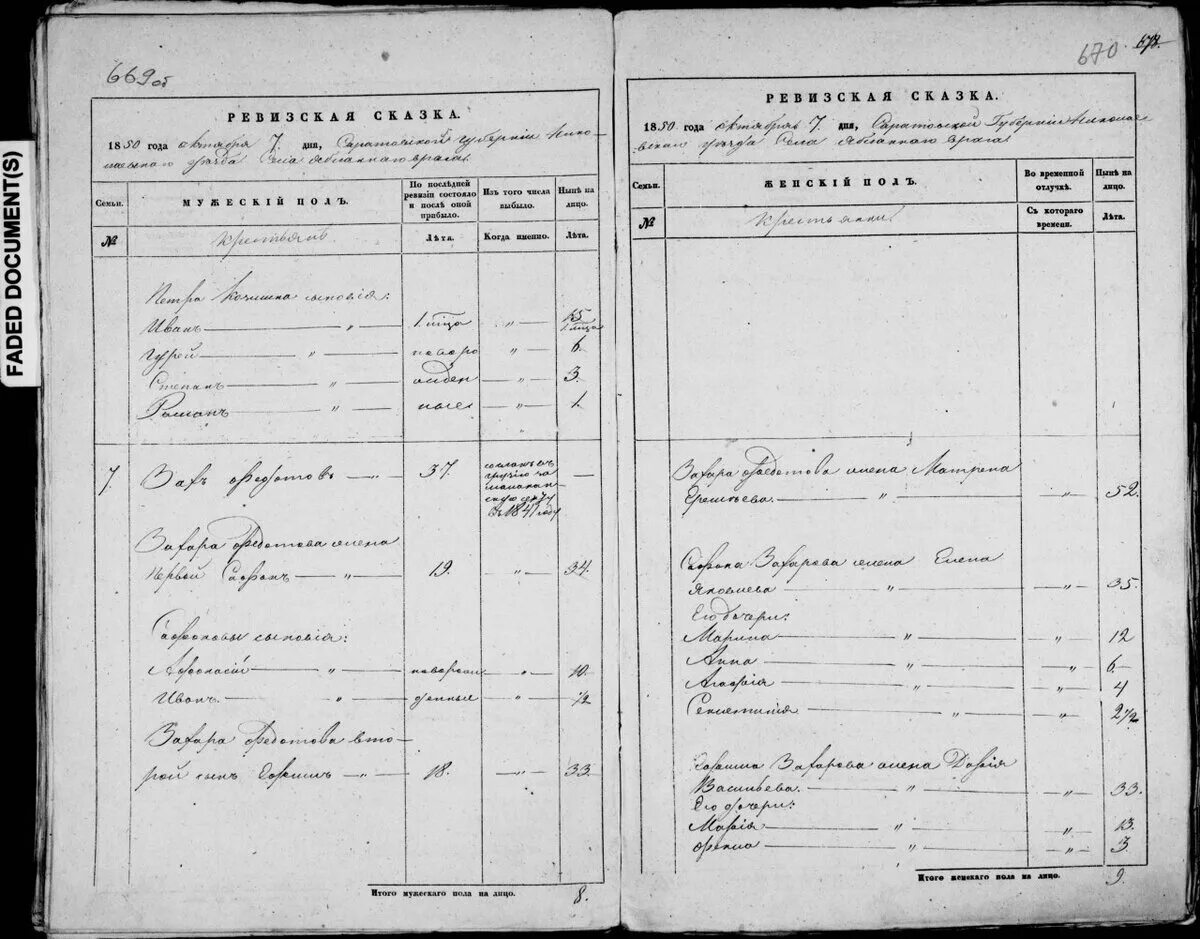 FADED DOCUMENT(S)
669об
РЕВИЗСКАЯ СКАЗКА.
1850 года октября 7. дня, Саратовской губерніи Нико-
лаевскаго уѣзда Села Яблоннаго врага.
Семьи.
МУЖЕСКІЙ ПОЛЪ.
По послѣдней ревизіи состояло и послѣ оной прибыло.
Изъ того числа выбыло.
Нынѣ на лицо.
№
крестьянъ
Лѣта.
Когда именно.
Лѣта.
Петра сыновія:
Иванъ — „ — 1. мѣца „ 15 1. мѣца
Гурей — „ — новоро „ 6.
Степанъ — „ — жден „ 3.
Романъ — „ — ные „ 1.
7. Заха Федотовъ — „ — 37 —
въ 1847 году
Захара Федотова
первой Софонъ — „ — 19. „ 34.
Софоновы сыновія:
Афонасій — „ — новорож „ 10.
Иванъ. — „ — денные „ 1/2
Захара Федотова вто-
рой сынъ Ефимъ — „ — 18. — „ — 33.
Итого мужескаго пола на лицо. 8.
670 678.
РЕВИЗСКАЯ СКАЗКА.
1850 года октября 7. дня, Саратовской Губерніи Никола-
евскаго уѣзда Села Яблоннаго врага
Семьи.
ЖЕНСКІЙ ПОЛЪ.
Во временной отлучкѣ.
Нынѣ на лицо.
№
крестьянки
Съ котораго времени.
Лѣта.
Захара Федотова жена Матрена
— „ — „ 52.
Софона Захарова жена Елена
Яковлева — „ — „ 35.
Его дочери:
Марина — „ — „ 12
Анна — „ — „ 6
Агафія — „ — „ 4
— „ — „ 2 1/2
Ефима Захарова жена Дарія
Васильева. — „ — „ 33.
Его дочери:
Марія — „ — „ 13.
Фекла — „ — „ 3.
Итого женскаго пола на лицо. 9.